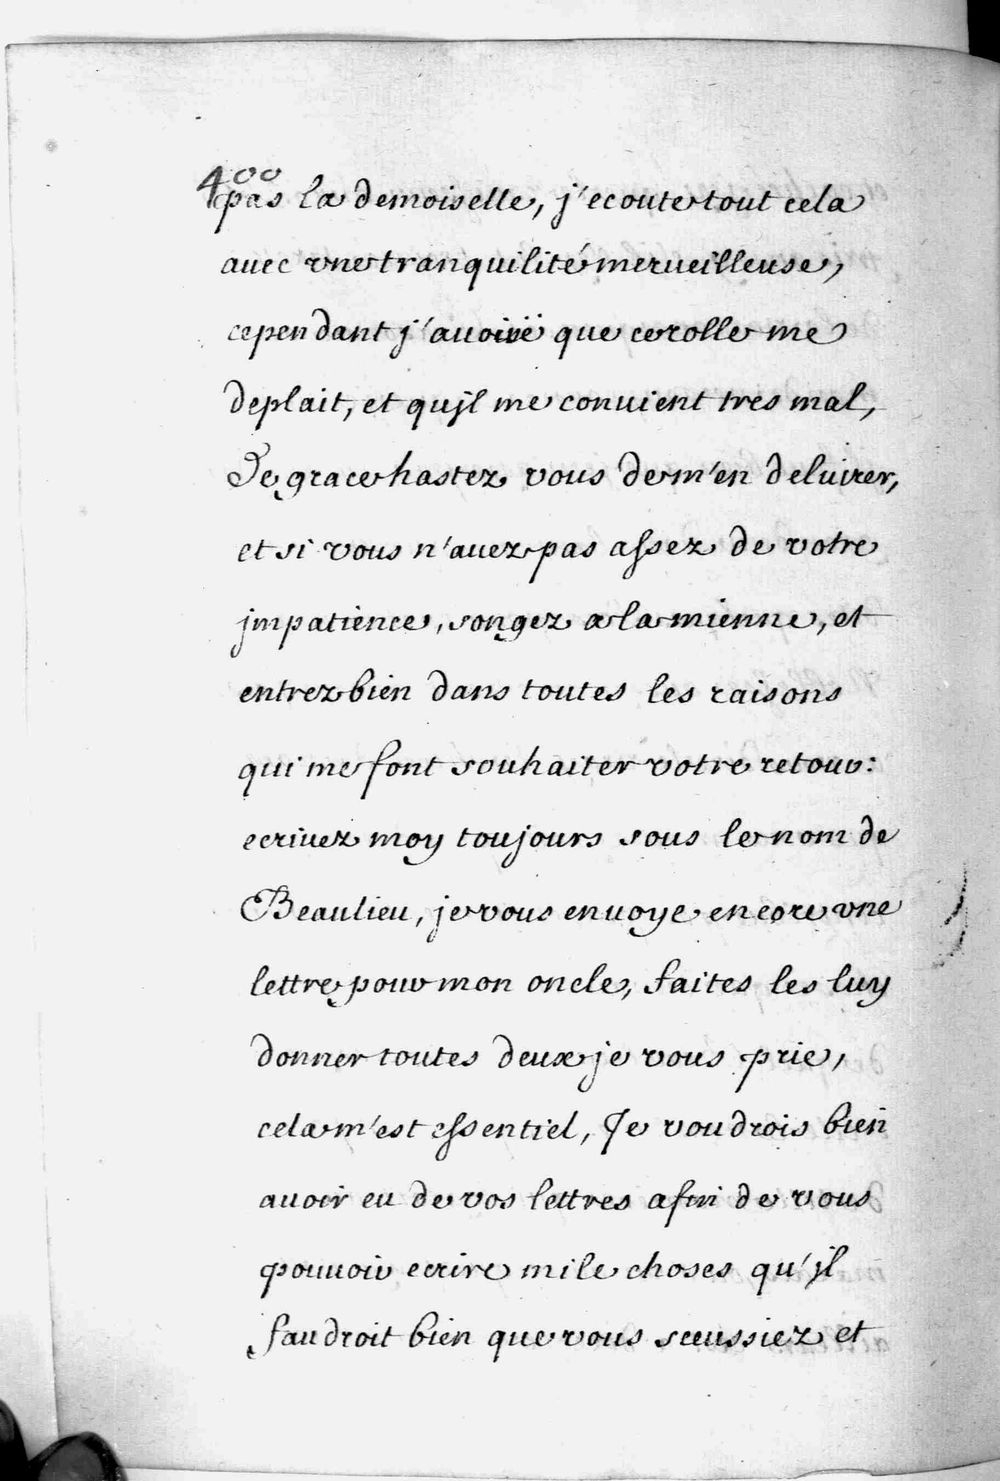 400
pas la demoiselle, j'ecoute tout cela
auec vne tranquilité merueilleuse,
cependant j'auoüe que ce rolle me
deplait, et qujl me conuient tres mal,
De grace hastez vous de m'en deliurer,
et si vous n'auez pas assez de votre
jmpatience, songez a la mienne, et
entrez bien dans toutes les raisons
qui me font souhaiter votre retour:
ecriuez moy toujours sous le nom de
Beaulieu, je vous enuoye encore vne
lettre pour mon oncle, faites les luy
donner toutes deux je vous prie,
cela m'est essentiel, Je voudrois bien
auoir eu de vos lettres afin de vous
pouuoir ecrire mile choses qu'jl
faudroit bien que vous sceussiez et